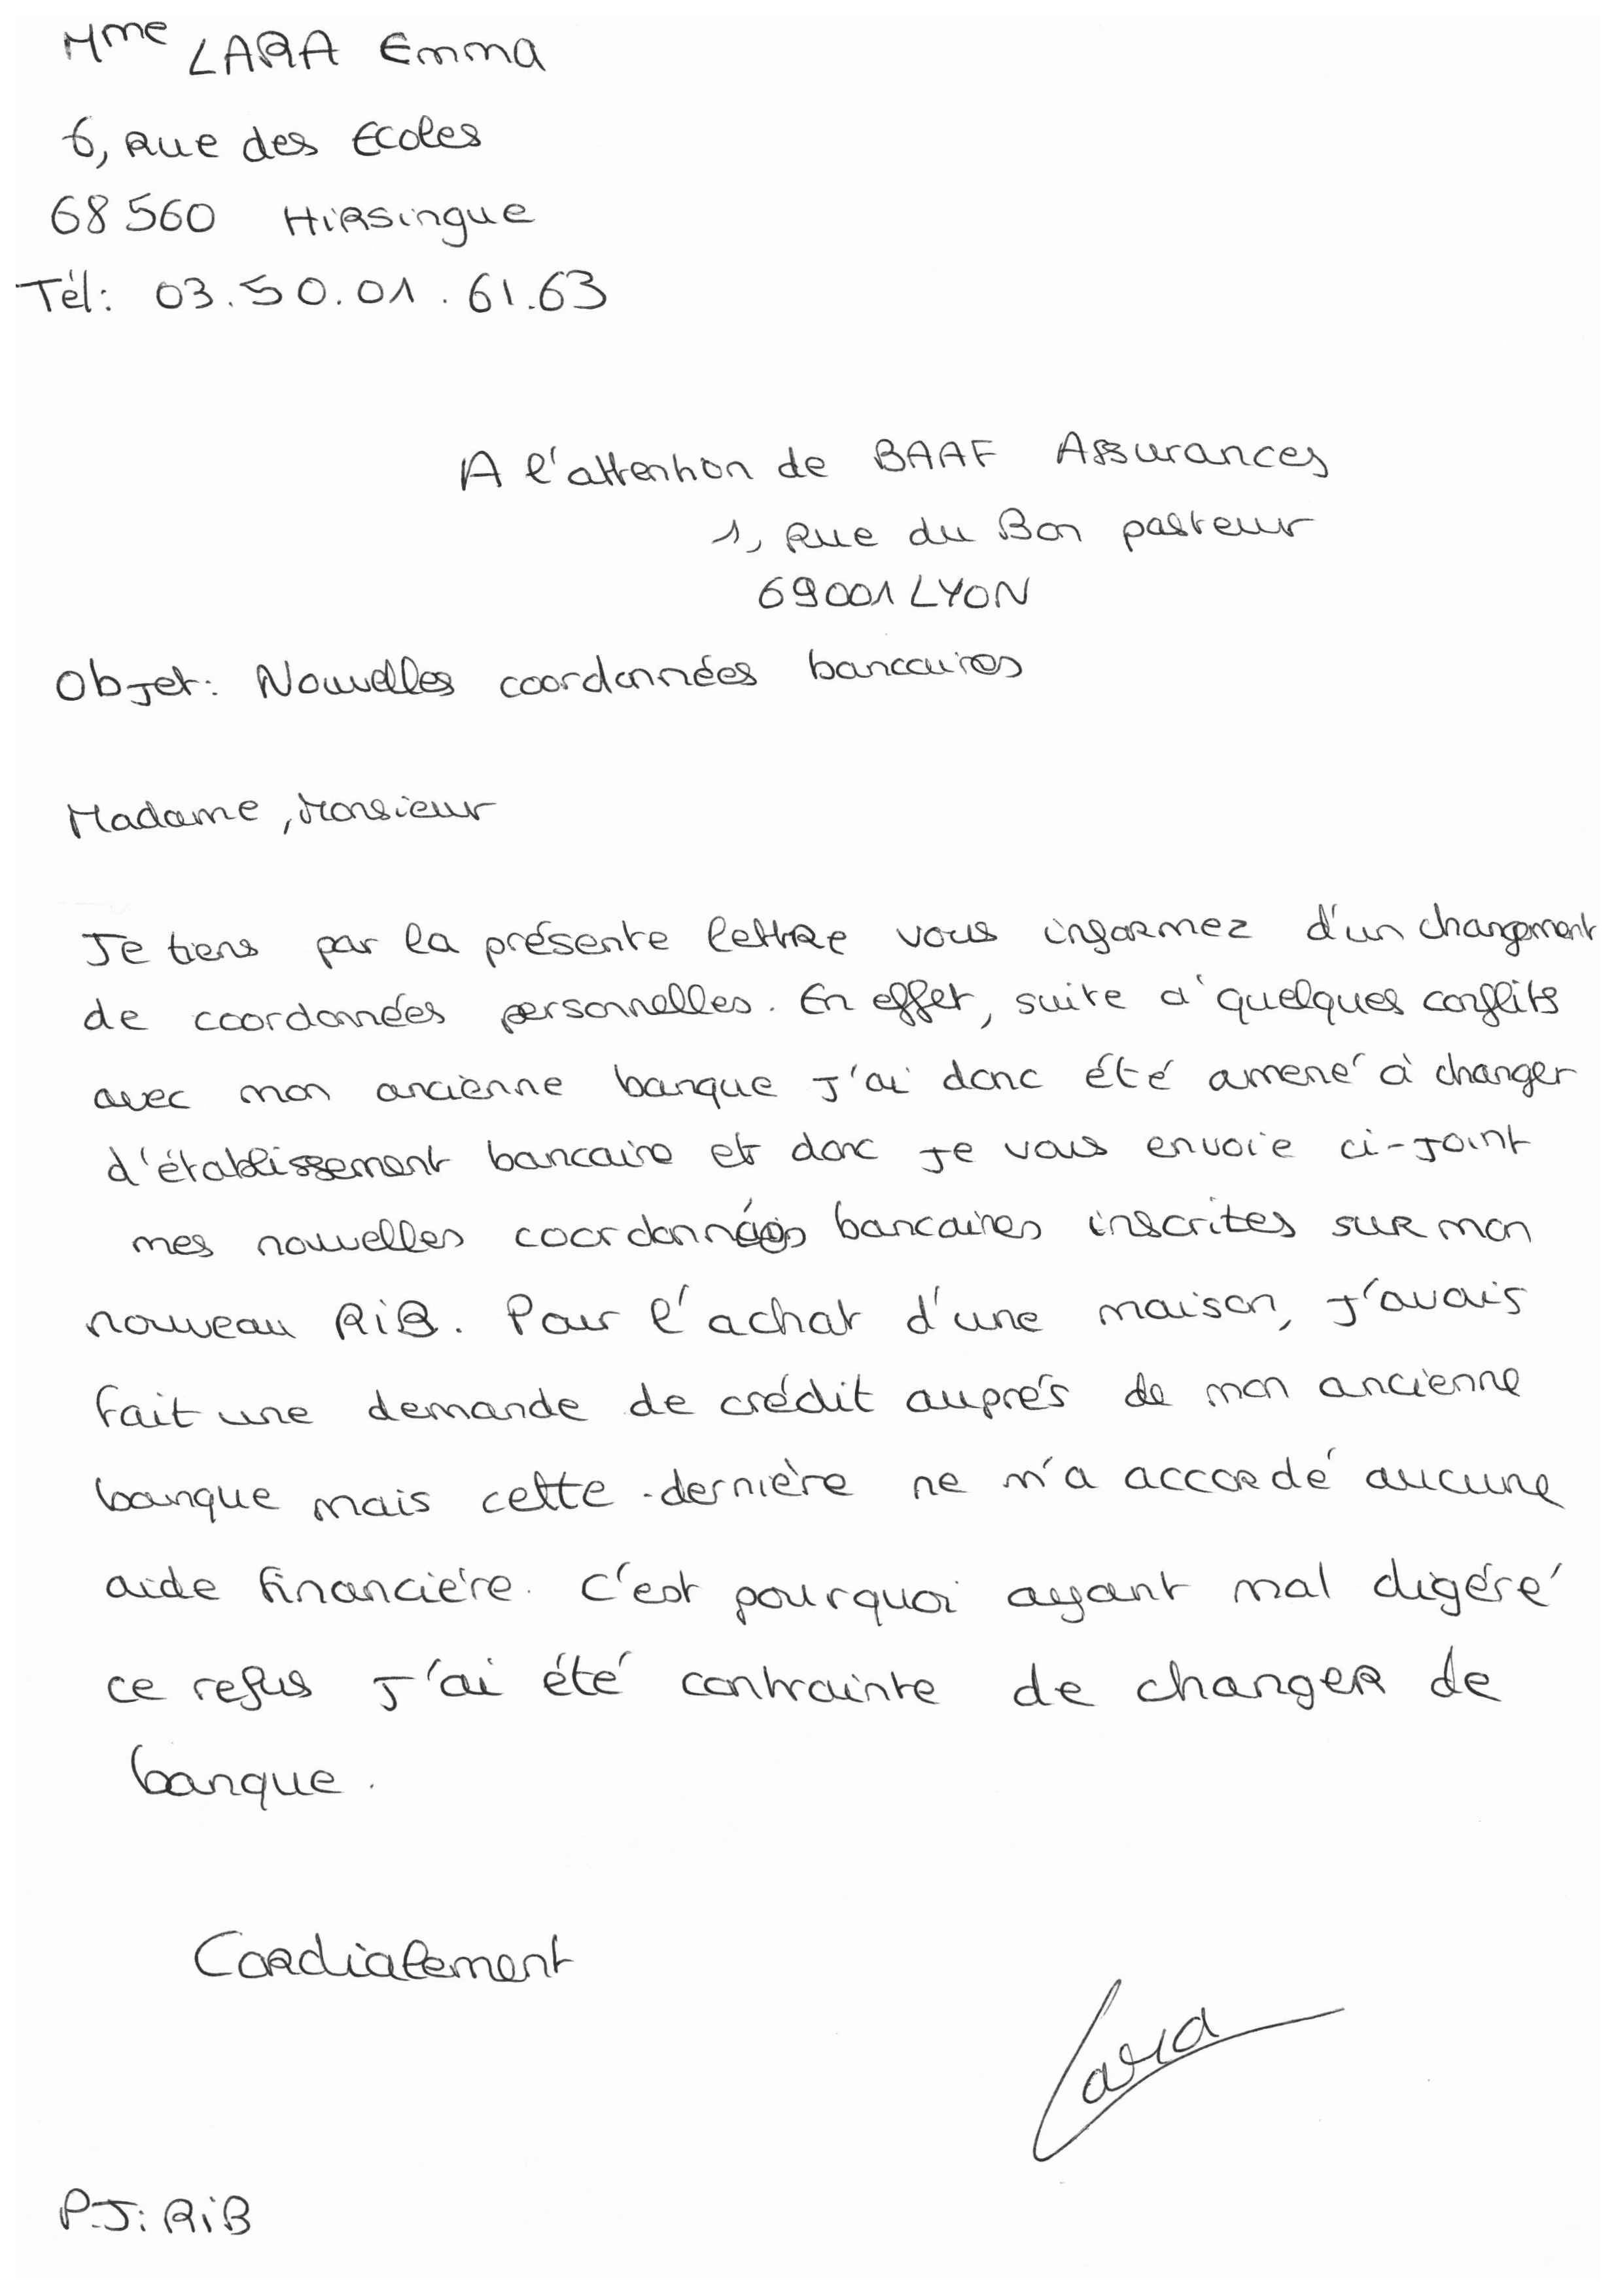 Mme LARA Emma
6, Rue des Ecoles
68560 Hirsingue
Tél: 03.50.01.61.63
A l'attention de BAAF Assurances
1, Rue du Bon pasteur
69001 LYON
Objet: Nouvelles coordonnées bancaires
Madame, Monsieur
Je tiens par la présente lettre vous informez d'un changement
de coordonnées personnelles. En effet, suite à quelques conflits
avec mon ancienne banque j'ai donc été amené à changer
d'établissement bancaire et donc je vous envoie ci-joint
mes nouvelles coordonnées bancaires inscrites sur mon
nouveau RiB. Pour l'achat d'une maison, j'avais
fait une demande de crédit auprès de mon ancienne
banque mais cette dernière ne m'a accordé aucune
aide financière. C'est pourquoi ayant mal digéré
ce refus j'ai été contrainte de changer de
banque.
Cordialement
Lara
P.J: RiB